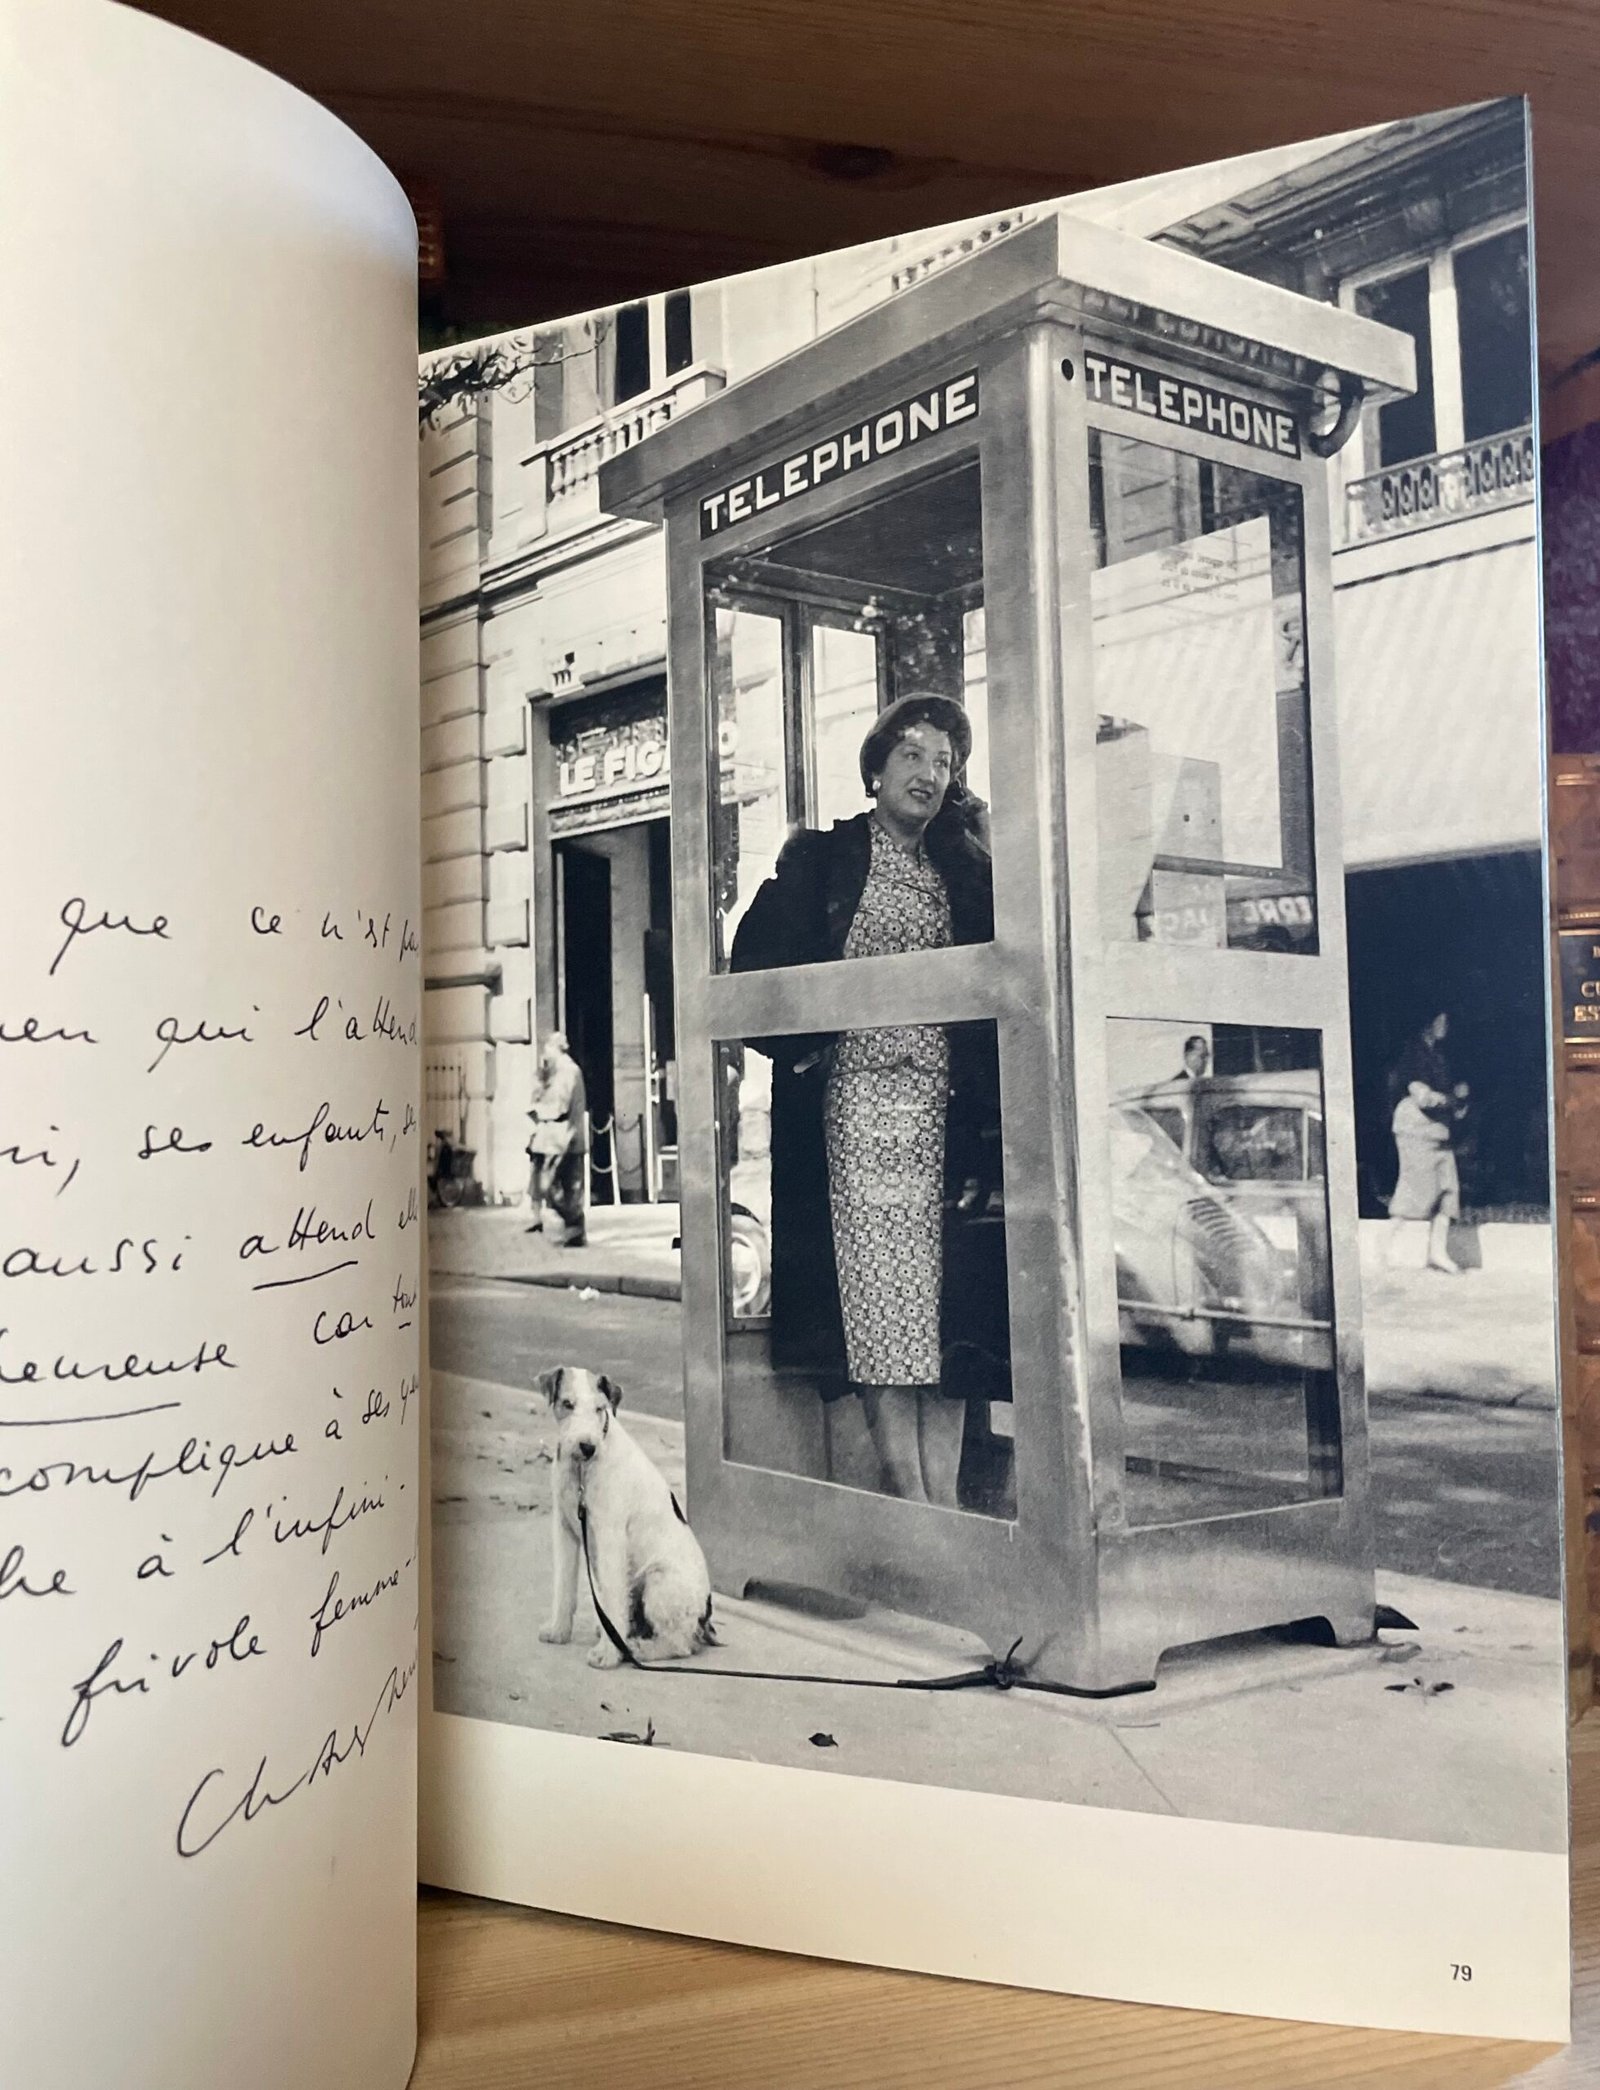 que ce n'est pa
en qui l'attend
ses enfants, se
aussi attend elle
heureuse car tout
complique à ses ye
à l'infini.
frivole femme
TELEPHONE
TELEPHONE
LE FIG O
79
CU
ES